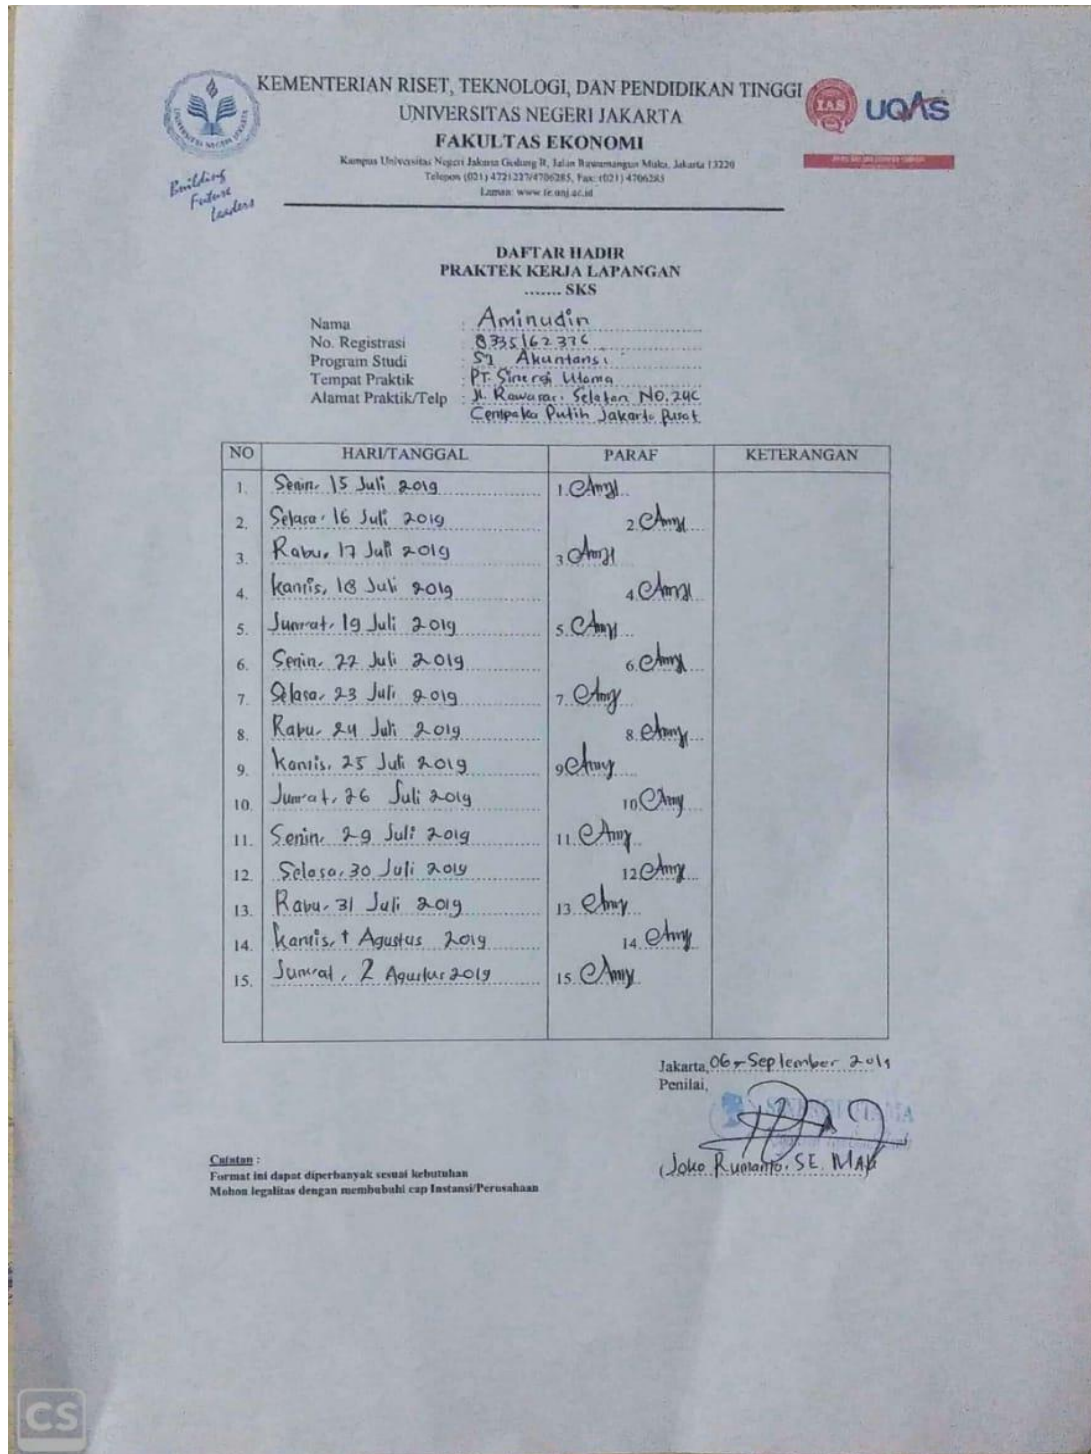 KEMENTERIAN RISET, TEKNOLOGI, DAN PENDIDIKAN TINGGI
UNIVERSITAS NEGERI JAKARTA
FAKULTAS EKONOMI
Kampus Universitas Negeri Jakarta Gedung R, Jalan Rawamangun Muka, Jakarta 13220
Telepon (021) 4721227/4706285, Fax: (021) 4706285
Laman: www.fe.unj.ac.id
UNIVERSITAS NEGERI JAKARTA
Building
Future
Leaders
IAS UQAS
DAFTAR HADIR
PRAKTEK KERJA LAPANGAN
....... SKS
Nama : Aminudin
No. Registrasi : 8335162376
Program Studi : S1 Akuntansi
Tempat Praktik : PT. Sinergi Utama
Alamat Praktik/Telp : Jl. Rawasari Selatan NO. 24C
Cempaka Putih Jakarta Pusat
NO HARI/TANGGAL PARAF KETERANGAN
1. Senin, 15 Juli 2019 1.
2. Selasa, 16 Juli 2019 2.
3. Rabu, 17 Juli 2019 3
4. Kamis, 18 Juli 2019 4.
5. Jum'at, 19 Juli 2019 5.
6. Senin, 22 Juli 2019 6.
7. Selasa, 23 Juli 2019 7.
8. Rabu, 24 Juli 2019 8.
9. Kamis, 25 Juli 2019 9
10. Jum'at, 26 Juli 2019 10.
11. Senin, 29 Juli 2019 11.
12. Selasa, 30 Juli 2019 12
13. Rabu, 31 Juli 2019 13.
14. Kamis, 1 Agustus 2019 14.
15. Jum'at, 2 Agustus 2019 15.
Jakarta, 06 - September 2019
Penilai,
(Joko Rumanto, SE. MAk
Catatan :
Format ini dapat diperbanyak sesuai kebutuhan
Mohon legalitas dengan membubuhi cap Instansi/Perusahaan
CS